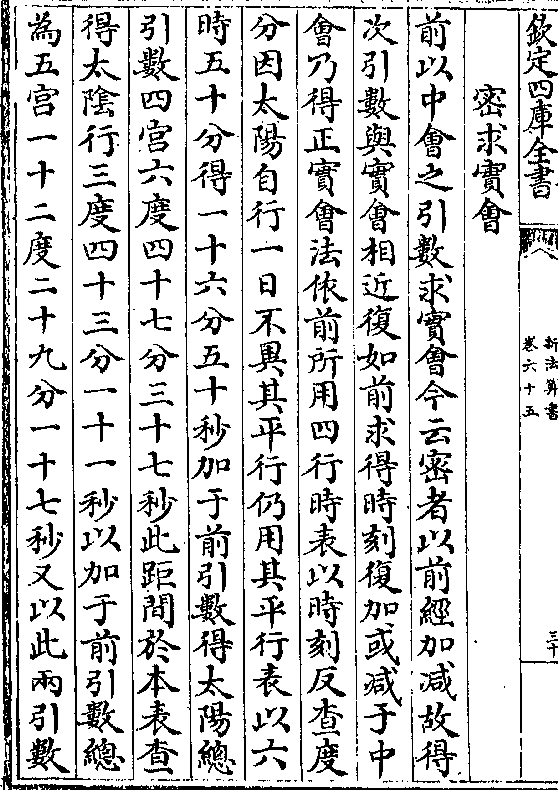 欽定四庫全書
新法算書
卷六十五
三十
密求實會
前以中會之引數求實會今云密者以前經加减故得
次引數與實會相近復如前求得時刻復加或减于中
會乃得正實會法依前所用四行時表以時刻反查度
分因太陽自行一日不異其平行仍用其平行表以六
時五十分得一十六分五十秒加于前引數得太陽總
引數四宫六度四十七分三十七秒此距間於本表查
得太陰行三度四十三分一十一秒以加于前引數總
為五宫一十二度二十九分一十七秒又以此兩引數